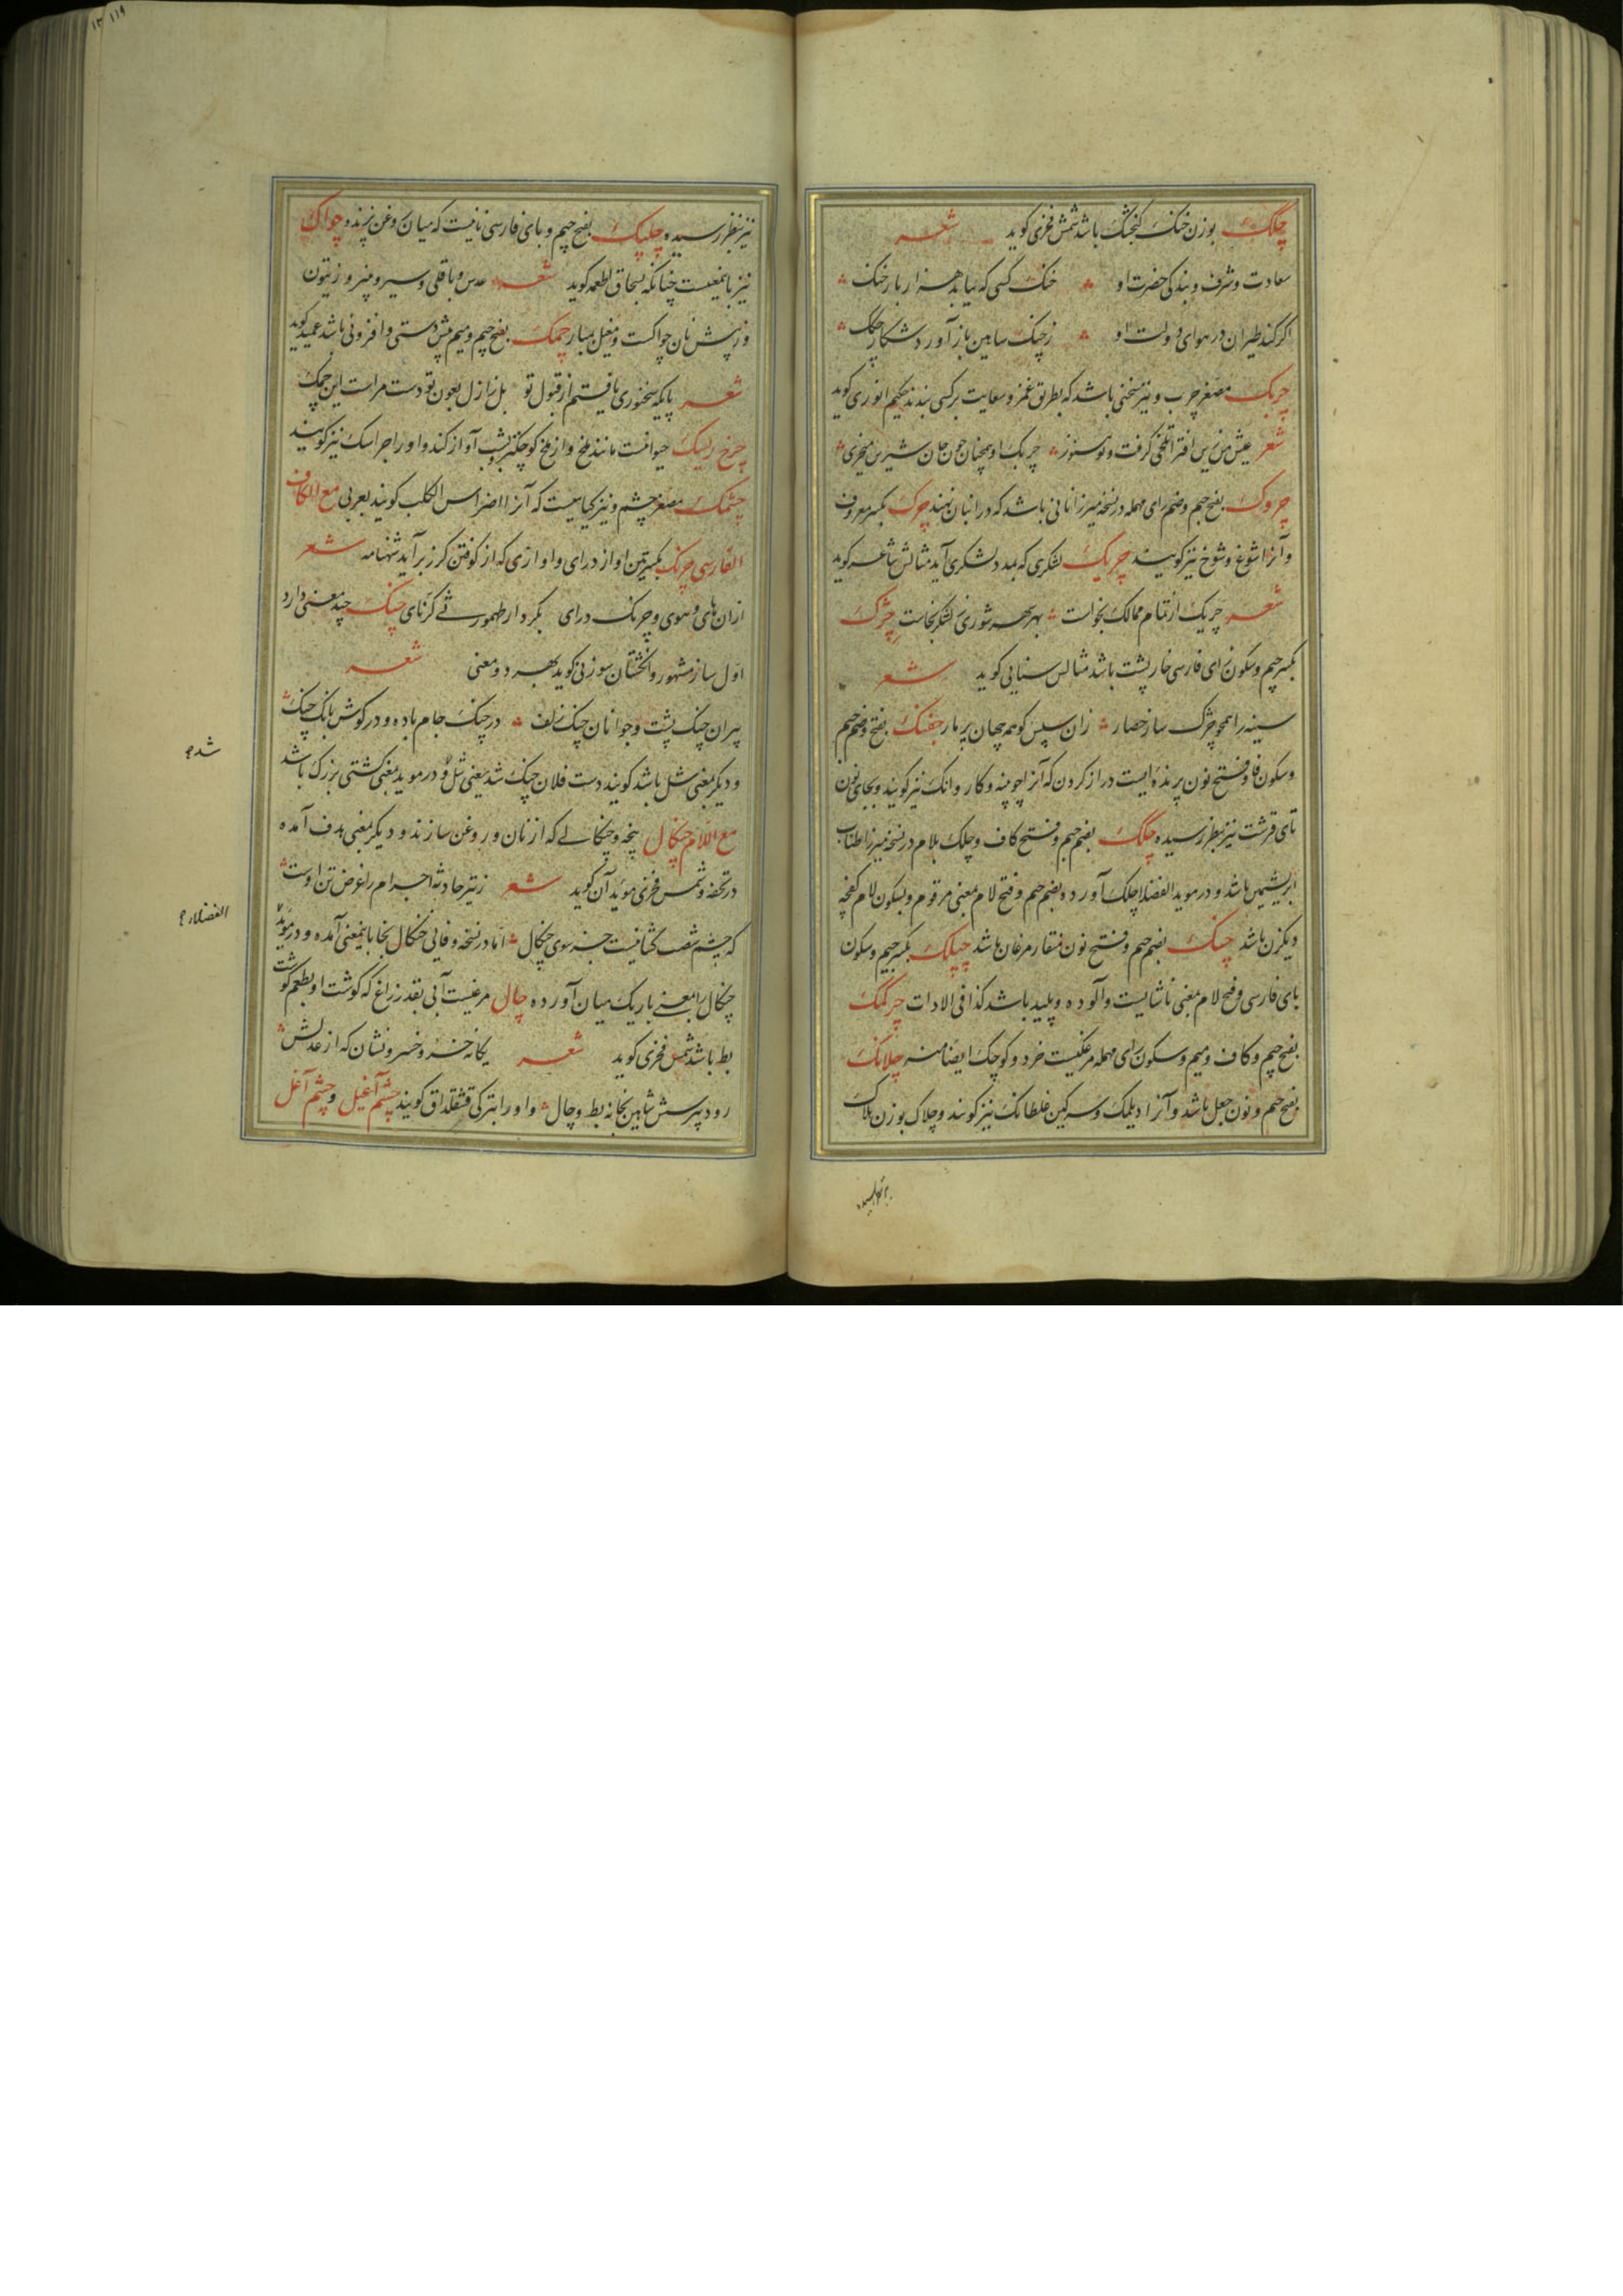 چگک بوزن خنک گنجشک باشد شمس فخری کوید شعر
سعادت و شرف و بندکی حضرت او خنک کسی که بیابد هزار بار خنک
اکر کند طیران در هوای دولت او ز چنک شاهین باز آورد شکار چگک
چربک مصغر چرب و نیز سخنی باشد که بطریق غمز و سعایت بر کسی بندند حکیم انوری کوید
شعر عیش من زین افترا تلخی گرفت و تو هنوز چربک او همچنان چون جان شیرین میخری
چروک بفتح جیم و ضم رای مهمله در نسخه میرزا نانی باشد که در انبان نهند چرک بکسر معروف
و آنرا شوغ و شوخ نیز کویند چریک لشکری که بمدد لشکری آید مثالش شاعر کوید
شعر چریک از تمام ممالک بخواست بهر شوری لشکر بخاست چژک
بکسر جیم و سکون زای فارسی خارپشت باشد مثالس سنایی کوید شعر
سینه را همچو چژک ساز حصار زان سپس کوهم جهان پر مار چفنک بفتح و ضم جیم
و سکون فا و فتح نون پرنده ایست دراز کردن که آنرا چوپنه و کاروانک نیز کویند و بجای نون
تای قرشت نیز بنظر رسیده چگک بضم جیم و فتح کاف و چلک بلام در نسخه میرزا طناب
ابریشمین باشد و در موید الفضلا چلک آورده بضم جیم و فتح لام بمعنی مرقوم و بسکون لام کفچه
دیکزن باشد چنک بضم جیم و فتح نون منقار مرغان باشد چپلک بکسر جیم و سکون
بای فارسی و فتح لام بمعنی ناشایست و آلوده و پلید باشد کذا فی الادات چرکمک
بفتح جیم و کاف و میم و سکون رای مهمله مرغکیست خرد و کوچک ایضا منه چلانک
بفتح جیم و نون جعل باشد و آنرا دیلمک و سرکین غلطانک نیز کویند و چلاک بوزن هلاک
نیز بنظر رسیده چلپک بفتح جیم و بای فارسی نانیست که میان روغن پزند و چواک
نیز باینمعنیست چنانکه بسحاق اطعمه کوید شعر عدس و باقلی و سیر و پنیر و زیتون
و ز پیش نان چواکست و مغیل بسیار چمک بفتح جیم و میم پیش دستی و افزونی باشد عمید کوید
شعر پایکه سخنوری یافتم از قبول تو بل ز ازل بعون تو دست مراست این چمک
چرخ ریسک حیوانیست مانند ملخ و از ملخ کوچکتر بشب آواز کند و او را جراسک نیز کویند
چشمک مصغر چشم و نیز کیاهیست که آنرا اضراس الکلب کویند بعربی مع الکاف
الفارسی چرنک بکسرتین اواز درای و اوازی که از کوفتن کرز برآید شهنامه شعر
ازان های و هوی و چرنک درای بکردار طهمورثی کرنای چنک چند معنی دارد
اول ساز مشهور و انخشتان سوزنی کوید بهر دو معنی شعر
پیران چنک پشت و جوانان چنک زلف در چنک جام باده و در کوش بانک چنک
و دیکر بمعنی شل باشد کویند دست فلان چنک شد یعنی شل و در موید بمعنی کشتی بزرک باشد
مع اللام چنکال پنجه و چنکالی که از نان و روغن سازند و دیکر بمعنی هدف آمده
در تحفه و شمس فخری موید آن کوید شعر ز تیر حادثه اجرام را غرض تن اوست
که چشم شصت کشانیست جز سوی چنکال اما در نسخه وفایی خنکال بخا باینمعنی آمده و در موید
چنکال را بمعنی باریک میان آورده چال مرغیست آبی بقدر زاغ که کوشت او بطعم کوشت
بط باشد شمس فخری کوید شعر یکانه خسرو خسرونشان که از عدلش
رود بپرسش شاهین بخانه بط و چال و او را بترکی قشقلداق کویند چشم آغیل و چشم آغل
شده
الفضلاء
۱۱۹